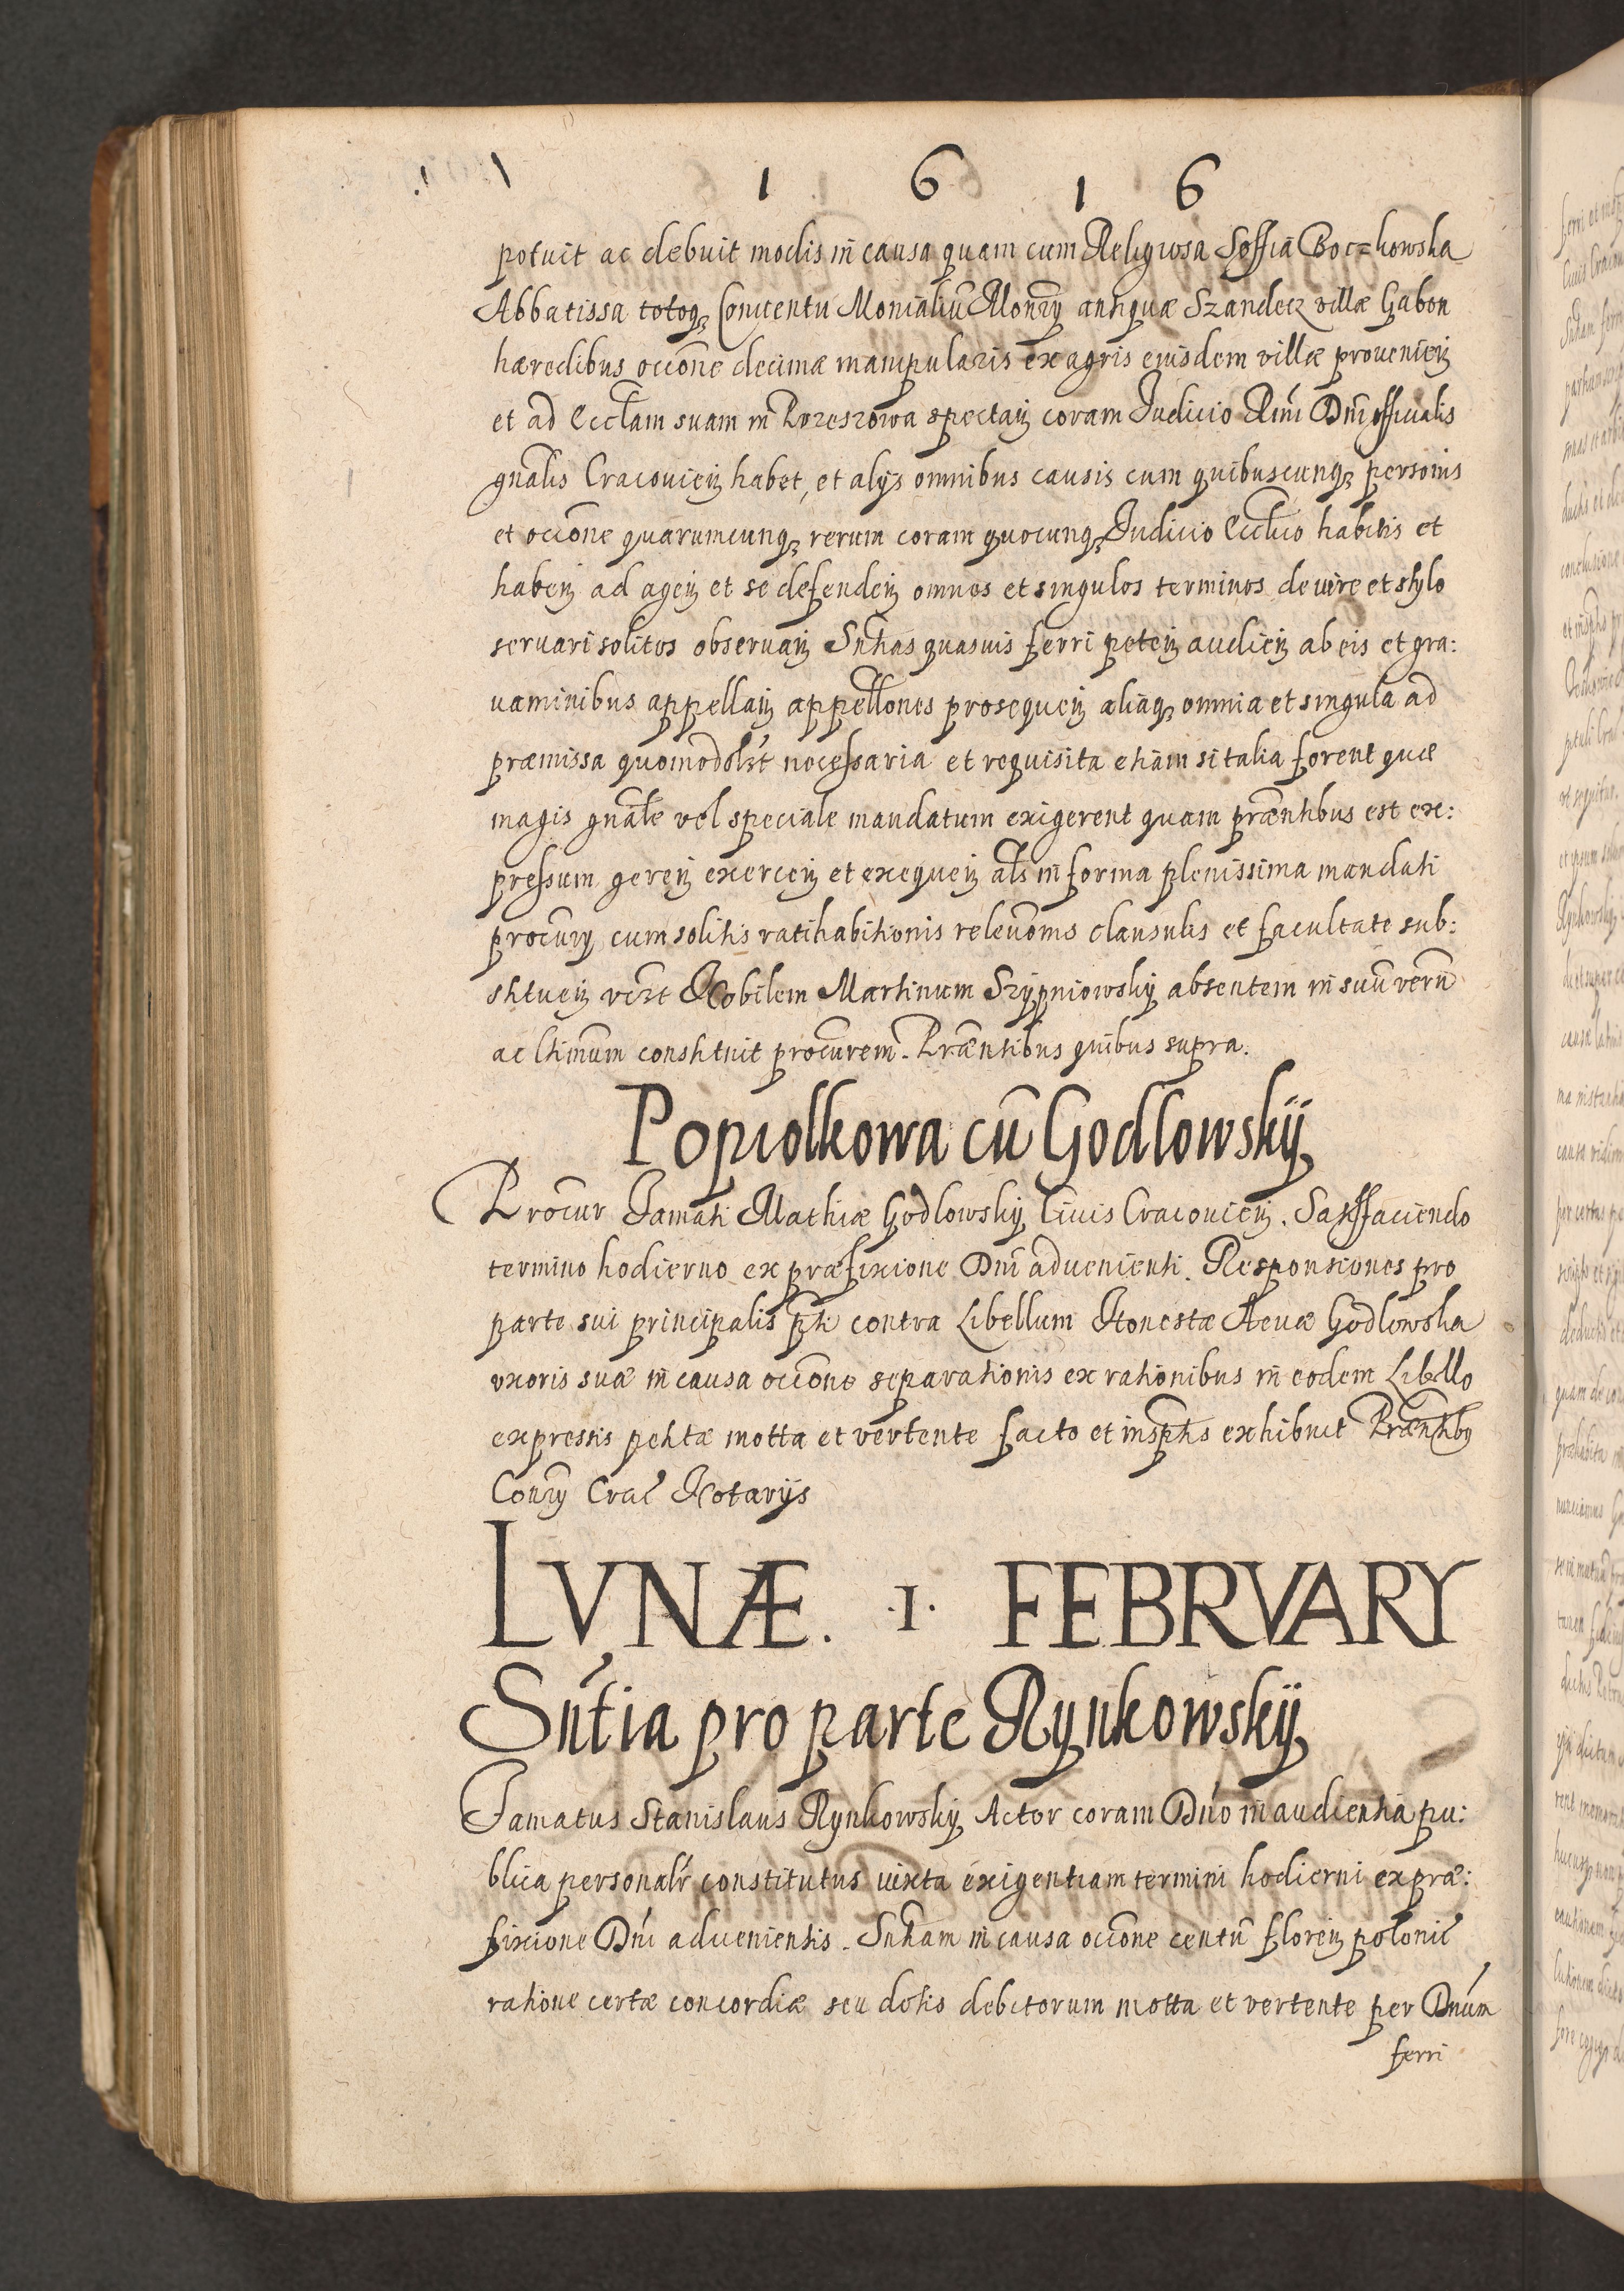 1 6 1 6
potuit ac debuit modis in causa quam cum Religiosa Soffia Boczkowska
Abbatissa totoq3 Conventu Monialiū Monrÿ antiquæ Szandecz villæ Gabon
hæredibus occōne decimæ manipularis ex agris eiusdem villæ provenien
et ad Ecclam suam in spectan coram Judicio Rmi Dni officialis
gnālis Cracovien habet, et alijs omnibus causis cum quibuscunq3 personis
et occōne quarumcunq3 rerum coram quocunq3 Judicio Ecclico habitis et
haben ad agen et se defenden omnes et singulos terminos de iure et stylo
servari solitos observan Sntias quasvis ferri peten audien ab eis et gra:
vaminibus appellan appellōnes prosequen aliaq3 omnia et singula ad
præmissa quomodolzt necessaria et requisita etiam si talia forent quæ
magis gnāle vel speciale mandatum exigerent quam præntibus est ex:
pressum geren exercen et exequen als in forma plenissima mandati
procurÿ cum solitis ratihabitionis relevōnis clausulis et facultate sub:
stituen vizt Nobilem Martinum Szypniowskÿ absentem in suū verū
ac ltimum constituit procurem. Præntibus quibus supra.
Popiolkowa cū Godlowskÿ
Procur Famati Mathiæ Godlowskÿ Civis Cracovien. Satisfaciendo
termino hodierno ex præfixione Dni advenienti. Responsiones pro
parte sui principalis pti contra Libellum Honestæ Evæ Godlowska
uxoris suæ in causa occōne separationis ex rationibus in eodem Libello
expressis petitæ motta et vertente facto et in sptis exhibuit Præntibus
Conrÿ Crac Notarijs
LVNÆ. .1. FEBRVARY
Sntia pro parte Rynkowskÿ
Famatus Stanislaus Rynkowskÿ Actor coram Dno in audientia pu:
blica personalr constitutus iuxta exigentiam termini hodierni ex præ:
fixione Dni advenientis. Sntiam in causa occōne centū floren polonic
ratione certæ concordiæ seu dotis debitorum motta et vertente per Dnum
ferri